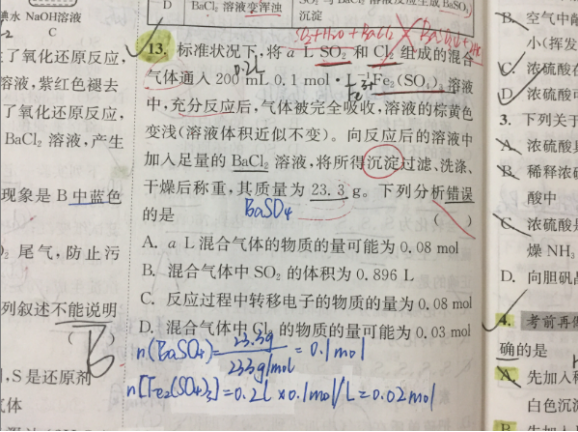 臭水 NaOH溶液
C
了氧化还原反应,
溶液,紫红色褪去
了氧化还原反应,
BaCl₂ 溶液,产生
现象是 B 中蓝色
尾气,防止污
列叙述不能说明
B
,S 是还原剂
体
D
BaCl₂ 溶液变浑浊
沉淀
BaSO₃
13. 标准状况下,将 a L SO₂ 和 Cl₂ 组成的混合
0.2L
气体通入 200 mL 0.1 mol·L⁻¹Fe₂(SO₄)₃ 溶液
Fe³⁺
中,充分反应后,气体被完全吸收,溶液的棕黄色
变浅(溶液体积近似不变)。向反应后的溶液中
加入足量的 BaCl₂ 溶液,将所得沉淀过滤、洗涤、
干燥后称重,其质量为 23.3 g。下列分析错误
的是 ( )
BaSO₄
A. a L混合气体的物质的量可能为 0.08 mol
B. 混合气体中 SO₂ 的体积为 0.896 L
C. 反应过程中转移电子的物质的量为 0.08 mol
D. 混合气体中 Cl₂ 的物质的量可能为 0.03 mol
n(BaSO₄)=23.3g/233g/mol=0.1mol
n[Fe₂(SO₄)₃]=0.2L×0.1mol/L=0.02mol
B. 空气中
小(挥发
C. 浓硫酸在
D. 浓硫酸可
3. 下列关于
A. 浓硫酸
B. 稀释浓
酸中
C. 浓硫酸
燥 NH₃
D. 向胆矾
4. 考前再
确的是
A. 先加入
白色沉
B. 先加入